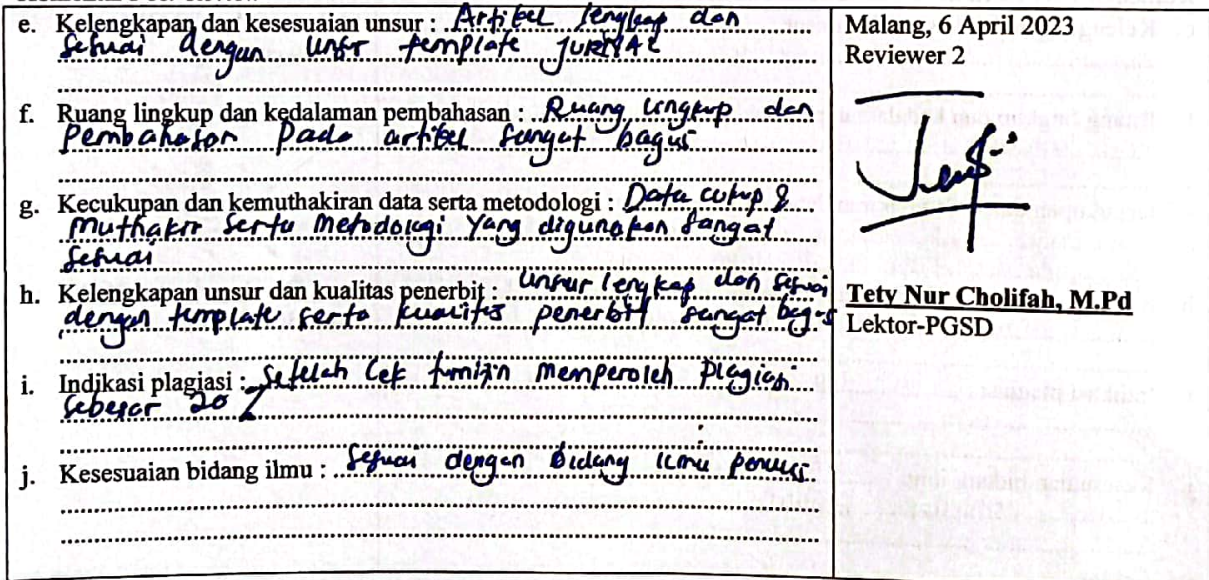 e. Kelengkapan dan kesesuaian unsur : Artikel lengkap dan
sesuai dengan unsur template JURNAL
f. Ruang lingkup dan kedalaman pembahasan : Ruang lingkup dan
pembahasan pada artikel sangat bagus
g. Kecukupan dan kemuthakiran data serta metodologi : Data cukup &
muthakir serta Metodologi Yang digunakan sangat
sesuai
h. Kelengkapan unsur dan kualitas penerbit : unsur lengkap dan sesuai
dengan template serta kualitas penerbit sangat bagus
i. Indikasi plagiasi : Setelah Cek turnitin memperoleh plagiasi
sebesar 20 %
j. Kesesuaian bidang ilmu : Sesuai dengan Bidang ilmu penulis
Malang, 6 April 2023
Reviewer 2
Tety Nur Cholifah, M.Pd
Lektor-PGSD